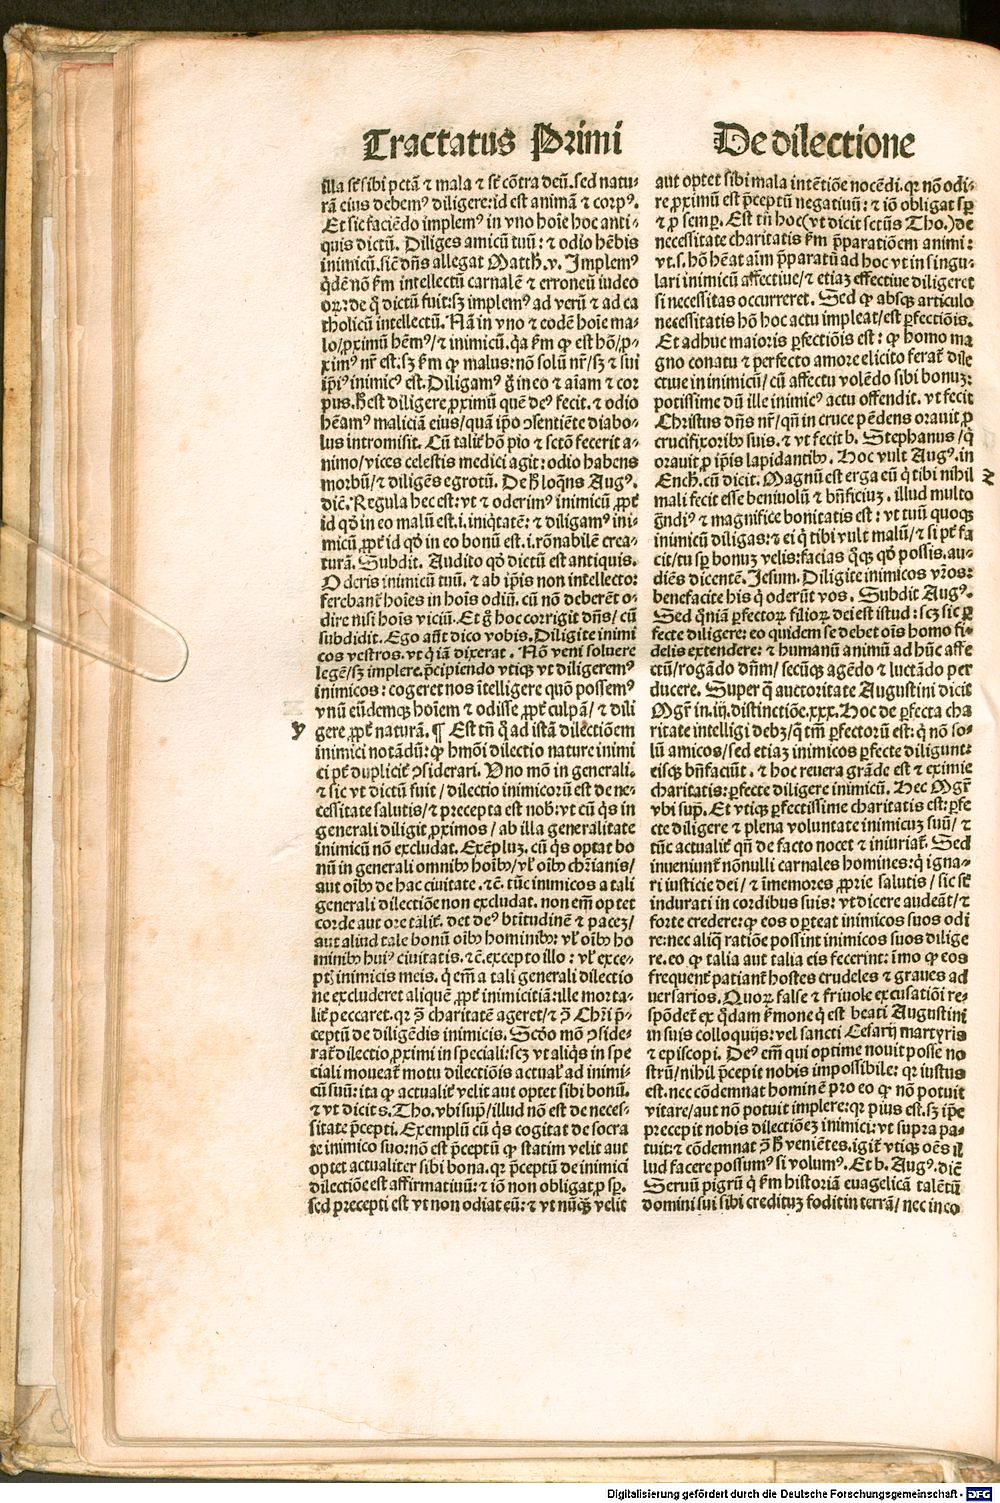 Tractatus Primi
De dilectione
illa st̄ sibi pctā ⁊ mala ⁊ st̄ cōtra deū. sed natu-
rā eius debemꝰ diligere: id est animā ⁊ corpꝰ.
Et sic faciēdo implemꝰ in vno hoīe hoc anti-
quis dictū. Diliges amicū tuū: ⁊ odio hēbis
inimicū. sicut dn̄s allegat Matth. v. Implemꝰ
qdē nō ẜm intellectū carnalē ⁊ erroneū iudeo
oꝝ: de q̊ dictū fuit: sꝫ implemꝰ ad verū ⁊ ad ca
tholicū intellectū. Nā in vno ⁊ eodē hoīe ma-
lo/ ꝓximū hēmꝰ/ ⁊ inimicū. q̇a ẜm ꝙ est hō/ ꝓ-
ximꝰ nr̄ est: sꝫ ẜm ꝙ malus: nō solū nr̄/ sꝫ ⁊ sui
ip̄iꝰ inimicꝰ est. Diligamꝰ g̊ in eo ⁊ aīam ⁊ cor
pus. Hoc est diligere ꝓximū quē deꝰ fecit. ⁊ odio
hēamꝰ maliciā eius/ quā ip̄o ↄsentiēte diabo-
lus intromisit. Cū talit̄ hō pio ⁊ sctō fecerit a-
nimo/ vices celestis medici agit: odio habens
morbū/ ⁊ diligēs egrotū. De h̊ loqn̄s Augꝰ.
dic̄. Regula hec est: vt ⁊ oderimꝰ inimicū ꝓpt̄
id qd̊ in eo malū est. i. iniq̇tatē: ⁊ diligamꝰ ini-
micū ꝓpt̄ id qd̊ in eo bonū est. i. rōnabilē crea-
turā. Subdit. Audito qd̊ dictū est antiquis.
Oderis inimicū tuū. ⁊ ab ip̄is non intellecto:
ferebant̄ hoīes in hoīs odiū. cū nō deberēt o-
dire nisi hoīs viciū. Et g̊ hoc corrigit dn̄s/ cū
subdidit. Ego aūt dico vobis. Diligite inimi
cos vestros. vt q̇ iā dixerat. Nō veni soluere
legē/ sꝫ implere. p̄cipiendo vtiqꝫ vt diligeremꝰ
inimicos: cogeret nos ītelligere quō possemꝰ
vnū eūdemqꝫ hoīem ⁊ odisse ꝓpt̄ culpā/ ⁊ dili
y
gere ꝓpt̄ naturā. ¶ Est tn̄ q̊ ad istā dilectiōem
inimici notādū: ꝙ hmōi dilectio nature inimi
ci pt̄ duplicit̄ ↄsiderari. Vno mō in generali.
⁊ sic vt dictū fuit/ dilectio inimicorū est de ne-
cessitate salutis/ ⁊ precepta est nob̄: vt cū q̇s in
generali diligit ꝓximos/ ab illa generalitate
inimicū nō excludat. Exēpluꝫ. cū q̇s optat bo
nū in generali omnibꝰ hoībꝰ/ vl̄ oībꝰ chr̄ianis/
aut oībꝰ de hac ciuitate. ⁊c̄. tūc inimicos a tali
generali dilectiōe non excludat. non em̄ optet
corde aut ore talit̄. det deꝰ btītudinē ⁊ paceꝫ/
aut aliud tale bonū oībꝰ hominibꝰ: vl̄ oībꝰ ho
minibꝰ huiꝰ ciuitatis. ⁊c̄. excepto illo: vl̄ exce-
ptꝭ inimicis meis. q̇ em̄ a tali generali dilectio
ne excluderet aliquē ꝓpt̄ inimicitiā: ille morta-
lit̄ peccaret. qꝛ ↄ̄ charitatē ageret/ ⁊ ↄ̄ Chr̄i p̄-
ceptū de diligēdis inimicis. Scd̊o mō ↄside-
rat̄ dilectio ꝓximi in speciali: scꝫ vt aliq̇s in spe
ciali moueat̄ motu dilectiōis actual̄ ad inimi-
cū suū: ita ꝙ actualit̄ velit aut optet sibi bonū.
⁊ vt dicit s. Tho. vbi supͣ/ illud nō est de neces-
sitate p̄cepti. Exemplū cū q̇s cogitat de socra
te inimico suo: nō est p̄ceptū ꝙ statim velit aut
optet actualiter sibi bona. qꝛ p̄ceptū de inimici
dilectiōe est affirmatiuū: ⁊ iō non obligat ꝓ sꝑ.
sed precepti est vt non odiat eū: ⁊ vt nūqꝫ velit
aut optet sibi mala intētiōe nocēdi. qꝛ nō odi-
re ꝓximū est p̄ceptū negatiuū: ⁊ iō obligat sꝑ
⁊ ꝓ semꝑ. Est tn̄ hoc (vt dicit sctūs Tho.) de
necessitate charitatis ẜm p̄paratiōem animi:
vt. s. hō hēat aīm p̄paratū ad hoc vt in singu-
lari inimicū affectiue/ ⁊ etiaꝫ effectiue diligeret
si necessitas occurreret. Sed ꝙ absqꝫ articulo
necessitatis hō hoc actu impleat/ est ꝑfectiōis.
Et adhuc maioris ꝑfectiōis est: ꝙ homo ma
gno conatu ⁊ perfecto amore elicito ferat̄ dile
ctiue in inimicū/ cū affectu volēdo sibi bonuꝫ:
potissime dū ille inimicꝰ actu offendit. vt fecit
Christus dn̄s nr̄/ qn̄ in cruce pēdens orauit ꝓ
crucifixoribꝰ suis. ⁊ vt fecit b. Stephanus/ q̇
orauit ꝓ ip̄is lapidantibꝰ. Hoc vult Augꝰ. in
z
Ench. cū dicit. Magnū est erga eū q̇ tibi nihil
mali fecit esse beniuolū ⁊ bn̄ficiuꝫ. illud multo
grādiꝰ ⁊ magnifice bonitatis est: vt tuū quoqꝫ
inimicū diligas: ⁊ ei q̇ tibi vult malū/ ⁊ si pt̄ fa
cit/ tu sꝑ bonuꝫ velis: facias q̊qꝫ qd̊ possis. au-
diēs dicentē. Jesum. Diligite inimicos vr̄os:
benefacite his q̇ oderūt vos. Subdit Augꝰ.
Sed qm̄ ꝑfectoꝝ filioꝝ dei est istud: scꝫ sic ꝑ
fecte diligere: eo quidem se debet oīs homo fi-
delis extendere: ⁊ humanū animū ad hūc affe
ctū/ rogādo dn̄m/ secūqꝫ agēdo ⁊ luctādo per
ducere. Super q̊ auctoritate Augustini dicit
Mgr̄ in. iij. distinctiōe. xxx. Hoc de ꝑfecta cha
ritate intelligi debꝫ/ q̄ tm̄ ꝑfectorū est: q̇ nō so-
lū amicos/ sed etiaꝫ inimicos ꝑfecte diligunt:
eisqꝫ bn̄faciūt. ⁊ hoc reuera grāde est ⁊ eximie
charitatis: ꝑfecte diligere inimicū. Hec Mgr̄
vbi supͣ. Et vtiqꝫ ꝑfectissime charitatis est: ꝑfe
cte diligere ⁊ plena voluntate inimicuꝫ suū/ ⁊
tūc actualit̄ qn̄ de facto nocet ⁊ iniuriat̄. Sed
inueniunt̄ nōnulli carnales homines: q̇ igna-
ri iusticie dei/ ⁊ īmemores ꝓprie salutis/ sic st̄
indurati in cordibus suis: vt dicere audeāt/ ⁊
forte credere: ꝙ eos oꝑteat inimicos suos odi
re: nec aliq̄ ratiōe possint inimicos suos dilige
re. eo ꝙ talia aut talia eis fecerint: īmo ꝙ eos
frequent̄ patiant̄ hostes crudeles ⁊ graues ad
uersarios. Quoꝝ false ⁊ friuole excusatiōi re-
spōdet̄ ex q̊dam ẜmone q̇ est beati Augustini
in suis colloquijs: vel sancti Cesarij martyris
⁊ episcopi. Deꝰ em̄ qui optime nouit posse no
strū/ nihil p̄cepit nobis impossibile: qꝛ iustus
est. nec cōdemnat hominē pro eo ꝙ nō potuit
vitare/ aut nō potuit implere: qꝛ pius est. sꝫ ip̄e
precepit nobis dilectioēꝫ inimici: vt supra pa-
tuit: ⁊ cōdemnat ↄ̄ h̊ veniētes. igit̄ vtiqꝫ oēs il
lud facere possumꝰ si volumꝰ. Et b. Augꝰ. dic̄
Seruū pigrū q̇ ẜm historiā euagelicā talētū
domini sui sibi credituꝫ fodit in terrā/ nec in eo
Digitalisierung gefördert durch die Deutsche Forschungsgemeinschaft - DFG